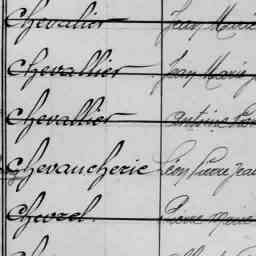 Chevalier Jean Marie
Chevallier Jean Marie
Chevallier Antoine
Chevaucherie Léon Pierre Jean
Chevrel Pierre Marie